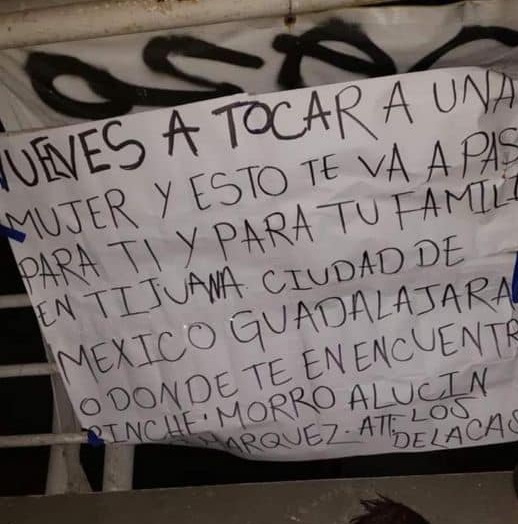 VUELVES A TOCAR A UNA
MUJER Y ESTO TE VA A PAS
PARA TI Y PARA TU FAMILI
EN TIJUANA CIUDAD DE
MEXICO GUADALAJARA
O DONDE TE ENENCUENTR
PINCHE·MORRO ALUCIN
MARQUEZ·ATT·LOS
DELACAS